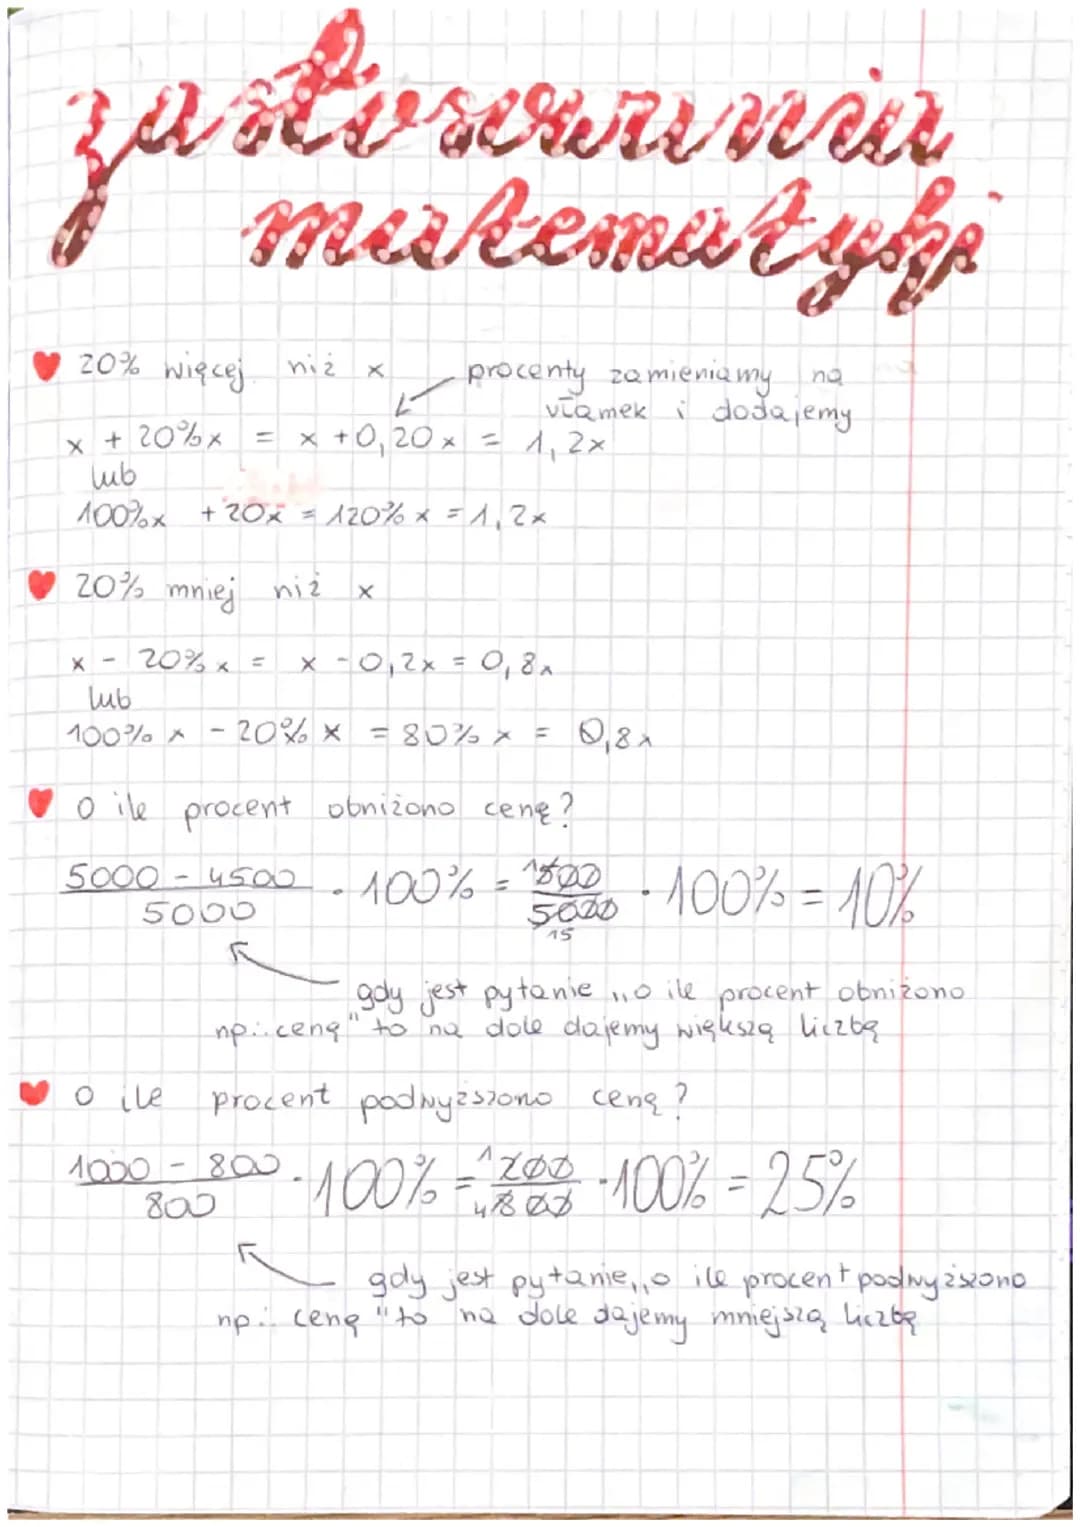 zastosowania
matematyki
20% więcej niż x procenty zamieniamy na
ułamek i dodajemy
x + 20%x = x + 0,20x = 1,2x
lub
100%x + 20x = 120% x = 1,2x
20% mniej niż x
x - 20% x = x - 0,2x = 0,8x
lub
100% x - 20% x = 80% x = 0,8x
O ile procent obniżono cenę?
5000 - 4500 / 5000 · 100% = 500 / 5000 · 100% = 10%
gdy jest pytanie „o ile procent obniżono
np.: cenę" to na dole dajemy większą liczbę
O ile procent podwyższono cenę?
1000 - 800 / 800 · 100% = 200 / 800 · 100% = 25%
gdy jest pytanie „o ile procent podwyższono
np.: cenę" to na dole dajemy mniejszą liczbę